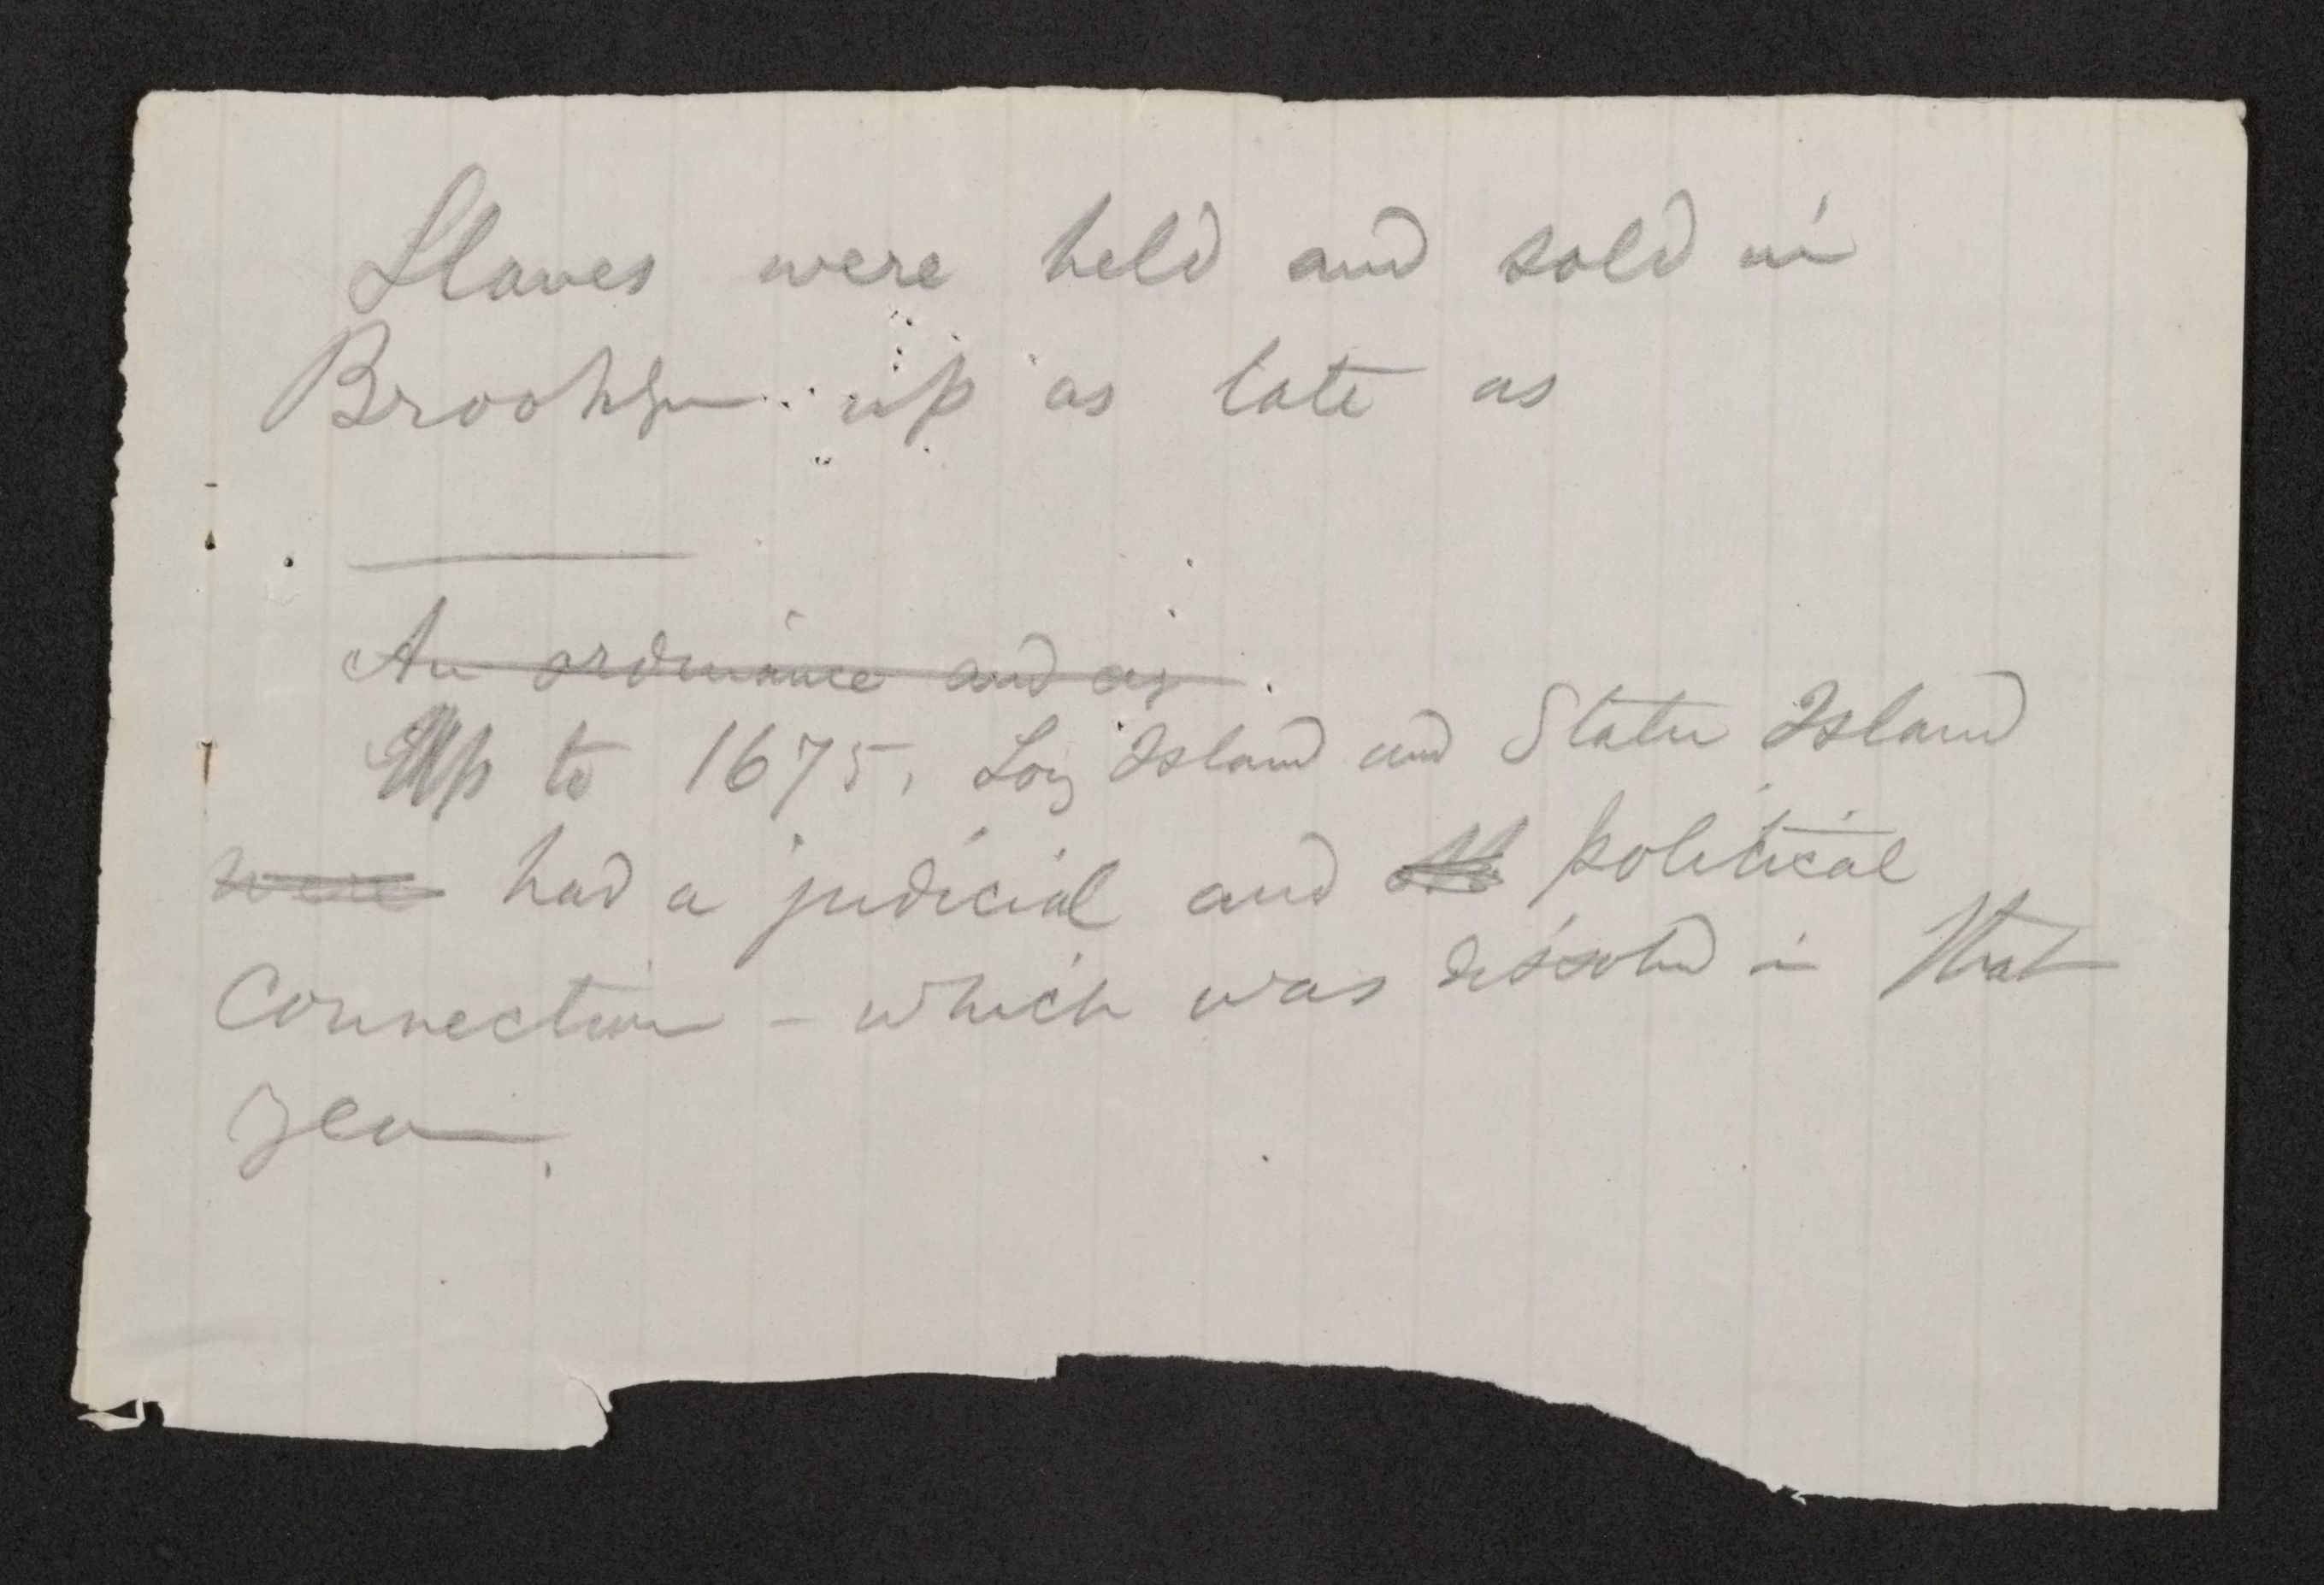 Slaves were held and sold in
Brooklyn up as late as
An ordinance and
Up to 1675, Long Island and Staten Island
were had a judicial and political
Connection – which was dissolved in that
year.